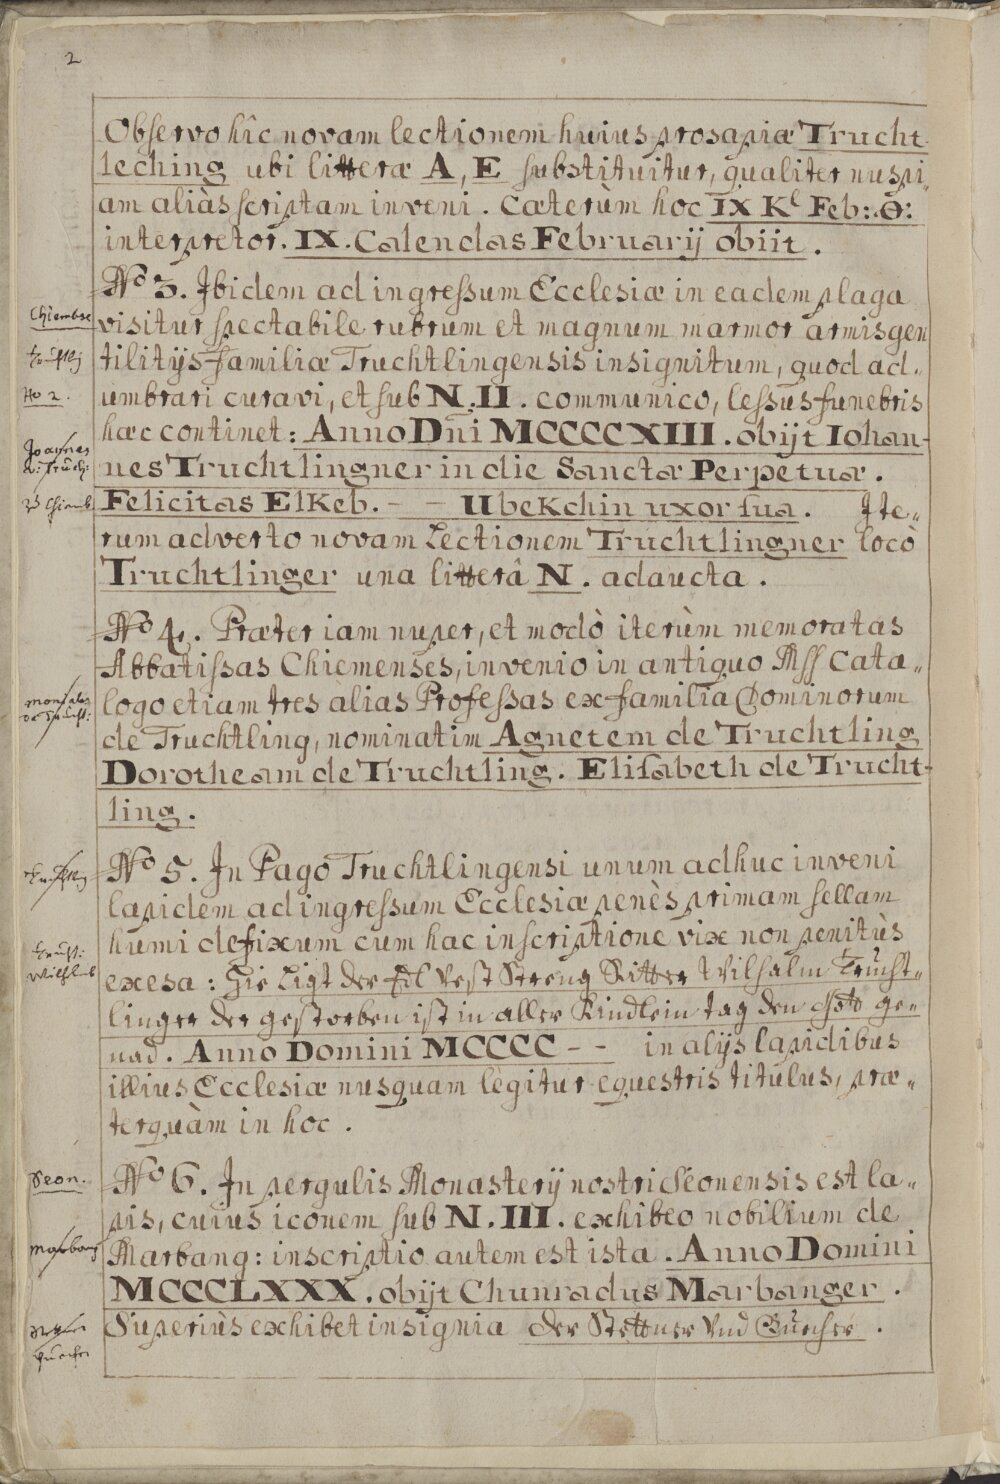 2
Observo hîc novam lectionem huius prosapiæ Trucht-
leching ubi litteræ A, E substituitur, qualiter nuspi„
am aliàs scriptam inveni. Cæterùm hoc IX Kl Feb: O:
interpretor. IX. Calendas Februarij obiit.
No 3. Ibidem ad ingressum Ecclesiæ in eadem plaga
Chiembse
visitur spectabile rubrum et magnum marmor armis gen
tilitijs familiæ Truchtlingensis insignitum, quod ad„
No 2.
umbrari curavi, et sub N. II. communico, lessus funebris
hæc continet: Anno Dni MCCCCXIII. obijt Iohan-
Joannes
nes Truchtlingner in die Sanctæ Perpetuæ.
Felicitas ElKeb. – – UbeKchin uxor sua. Ite„
rum adverto novam Lectionem Truchtlingner locò
Truchtlinger una litterâ N. adaucta.
No 4. Præter iam nuper, et modò iterùm memoratas
Abbatissas Chiemenses, invenio in antiquo Mss Cata„
logo etiam tres alias Professas ex familia Dominorum
de Truchtling, nominatim Agnetem de Truchtling
Dorotheam de Truchtling. Elisabeth de Trucht-
ling.
No 5. In Pago Truchtlingensi unum adhuc inveni
lapidem ad ingressum Ecclesiæ penès primam sellam
humi defixum cum hac inscriptione vix non penitùs
exesa: Hie Ligt der Edl Vest Streng Ritter Wilhalm Trucht„
linger der gestorben ist in aller Kindlein tag den Gott ge„
nad. Anno Domini MCCCC – – in alijs lapidibus
illius Ecclesiæ nusquam legitur equestris titulus, præ„
terquàm in hoc.
Seon.
No 6. In pergulis Monasterij nostri Séonensis est la„
pis, cuius iconem sub N. III. exhibeo nobilium de
Marbang
Marbang: inscriptio autem est ista. Anno Domini
MCCCLXXX. obijt Chunradus Marbanger.
Superiùs exhibet insignia der Stettner Vnd Guecher.